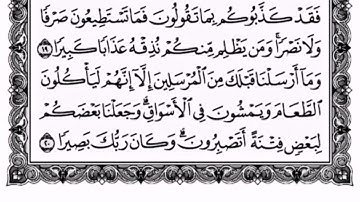 فَقَدْ كَذَّبُوكُم بِمَا تَقُولُونَ فَمَا تَسْتَطِيعُونَ صَرْفًا
وَلَا نَصْرًا ۚ وَمَن يَظْلِم مِّنكُمْ نُذِقْهُ عَذَابًا كَبِيرًا ۝١٩
وَمَا أَرْسَلْنَا قَبْلَكَ مِنَ الْمُرْسَلِينَ إِلَّا إِنَّهُمْ لَيَأْكُلُونَ
الطَّعَامَ وَيَمْشُونَ فِي الْأَسْوَاقِ ۗ وَجَعَلْنَا بَعْضَكُمْ
لِبَعْضٍ فِتْنَةً أَتَصْبِرُونَ ۗ وَكَانَ رَبُّكَ بَصِيرًا ۝٢٠